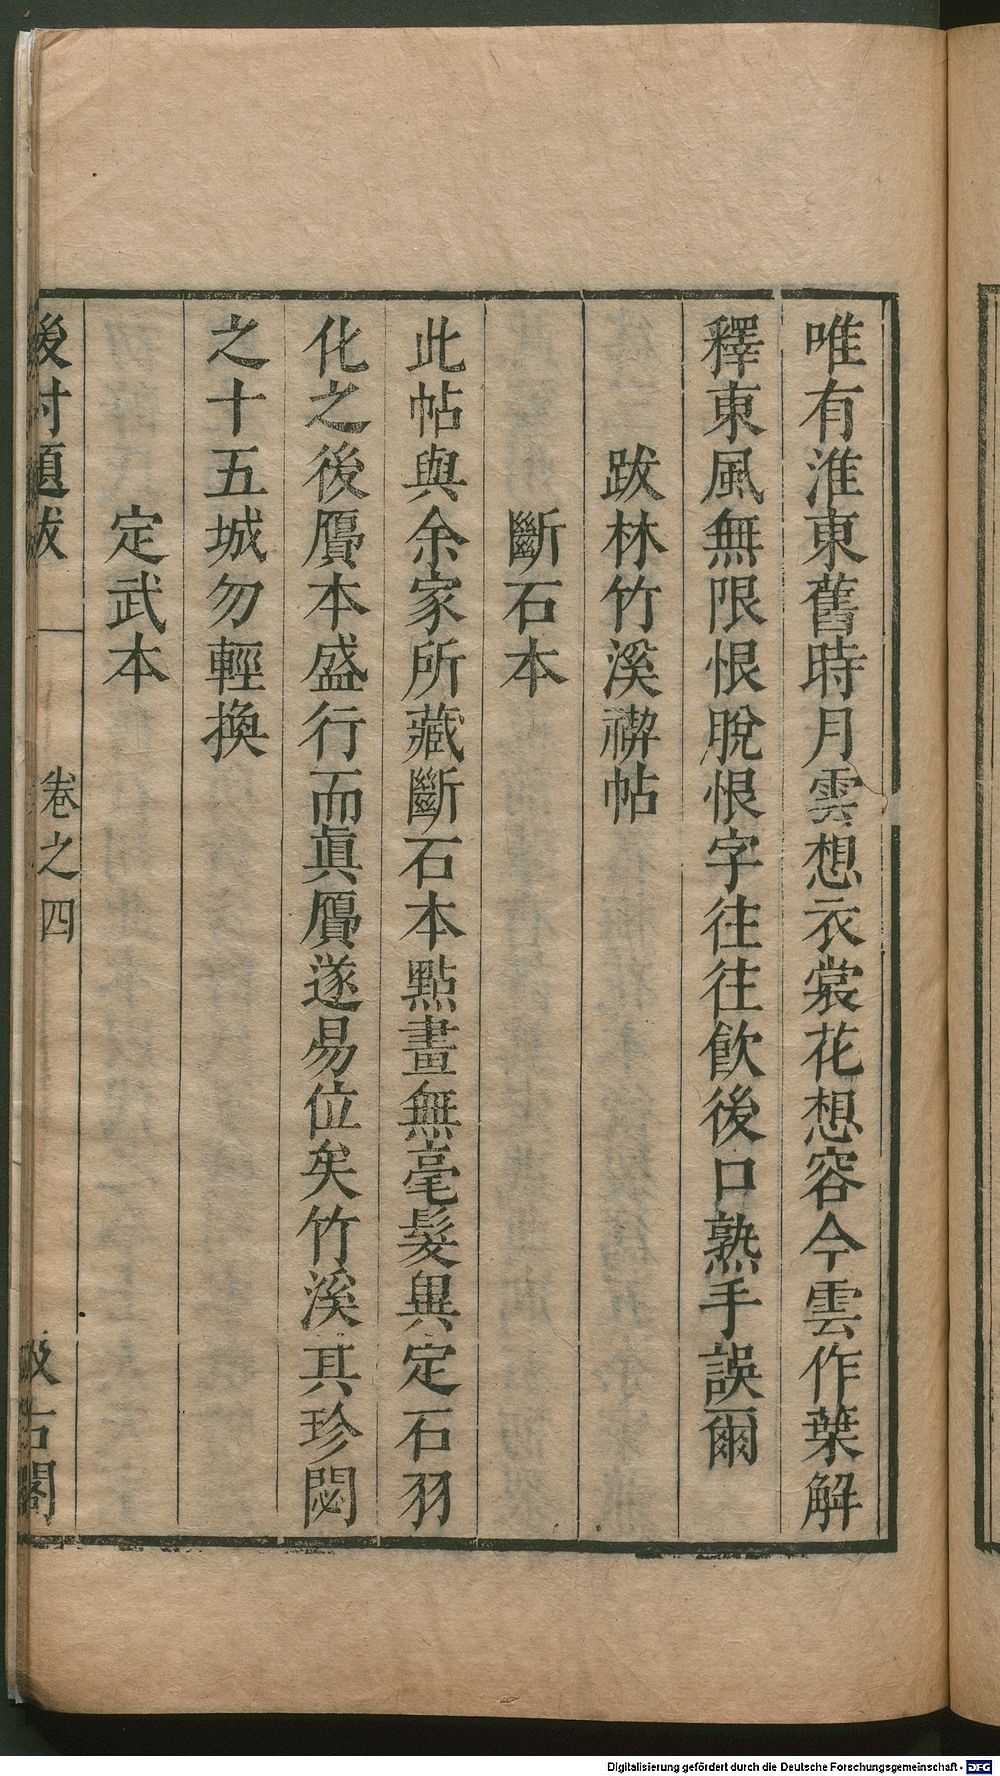 唯有淮東舊時月雲想衣裳花想容今雲作葉解
釋東風無限恨脫恨字往往飲後口熟手誤爾
跋林竹溪禊帖
斷石本
此帖與余家所藏斷石本點畫無毫髮異定石羽
化之後贋本盛行而眞贋遂易位矣竹溪其珍閟
之十五城勿輕換
定武本
後村題跋
卷之四
汲古閣
Digitalisierung gefördert durch die Deutsche Forschungsgemeinschaft - DFG